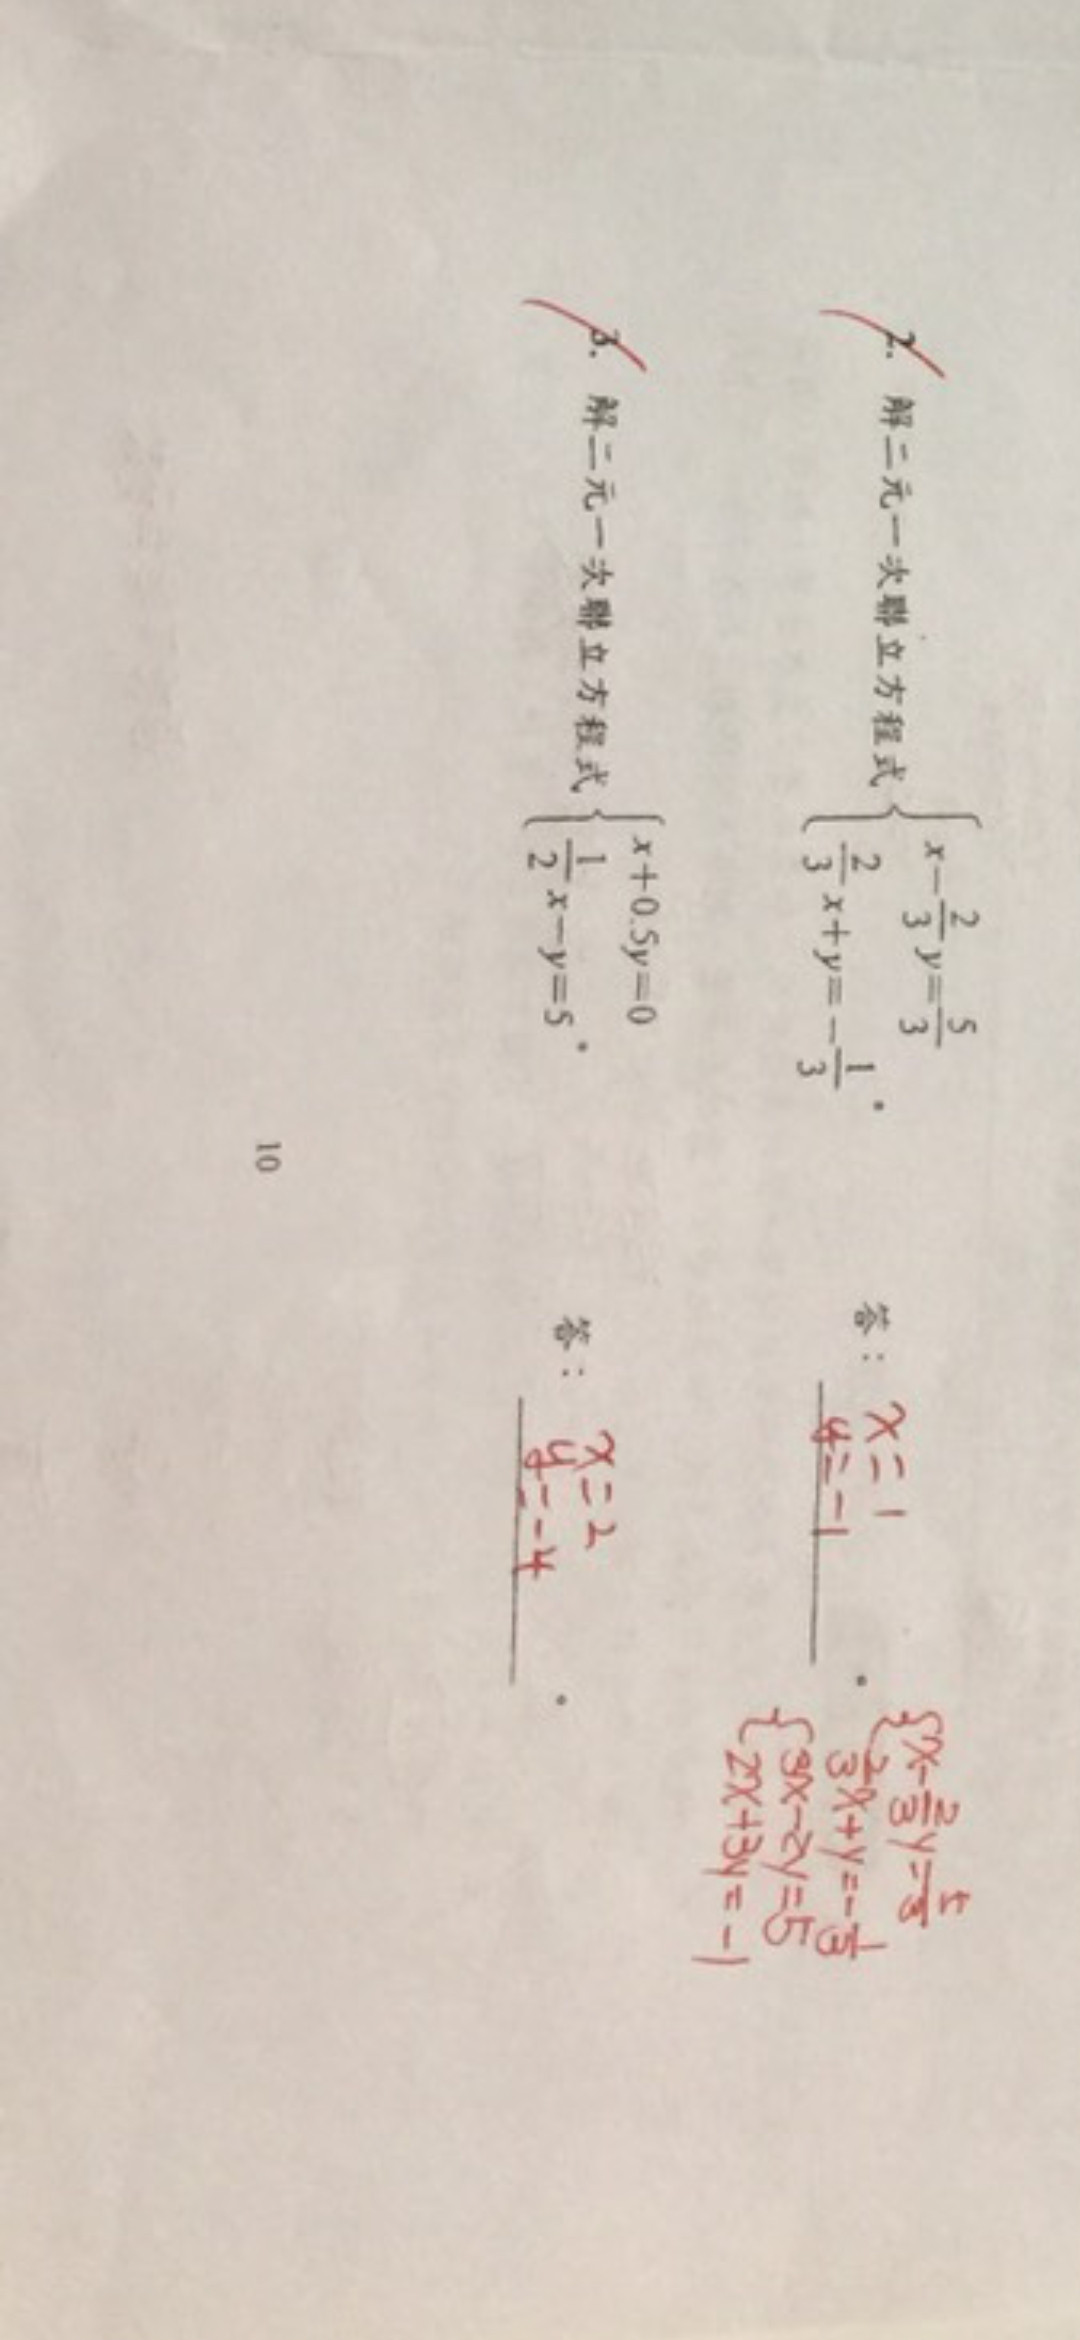 2. 解二元一次聯立方程式 { x－2/3 y＝5/3
2/3 x＋y＝－1/3 。
答： x＝1
y＝－1 。
{ x－2/3 y＝5/3
2/3 x＋y＝－1/3
{ 3x－2y＝5
2x＋3y＝－1
3. 解二元一次聯立方程式 { x＋0.5y＝0
1/2 x－y＝5 。
答： x＝2
y＝－4 。
10